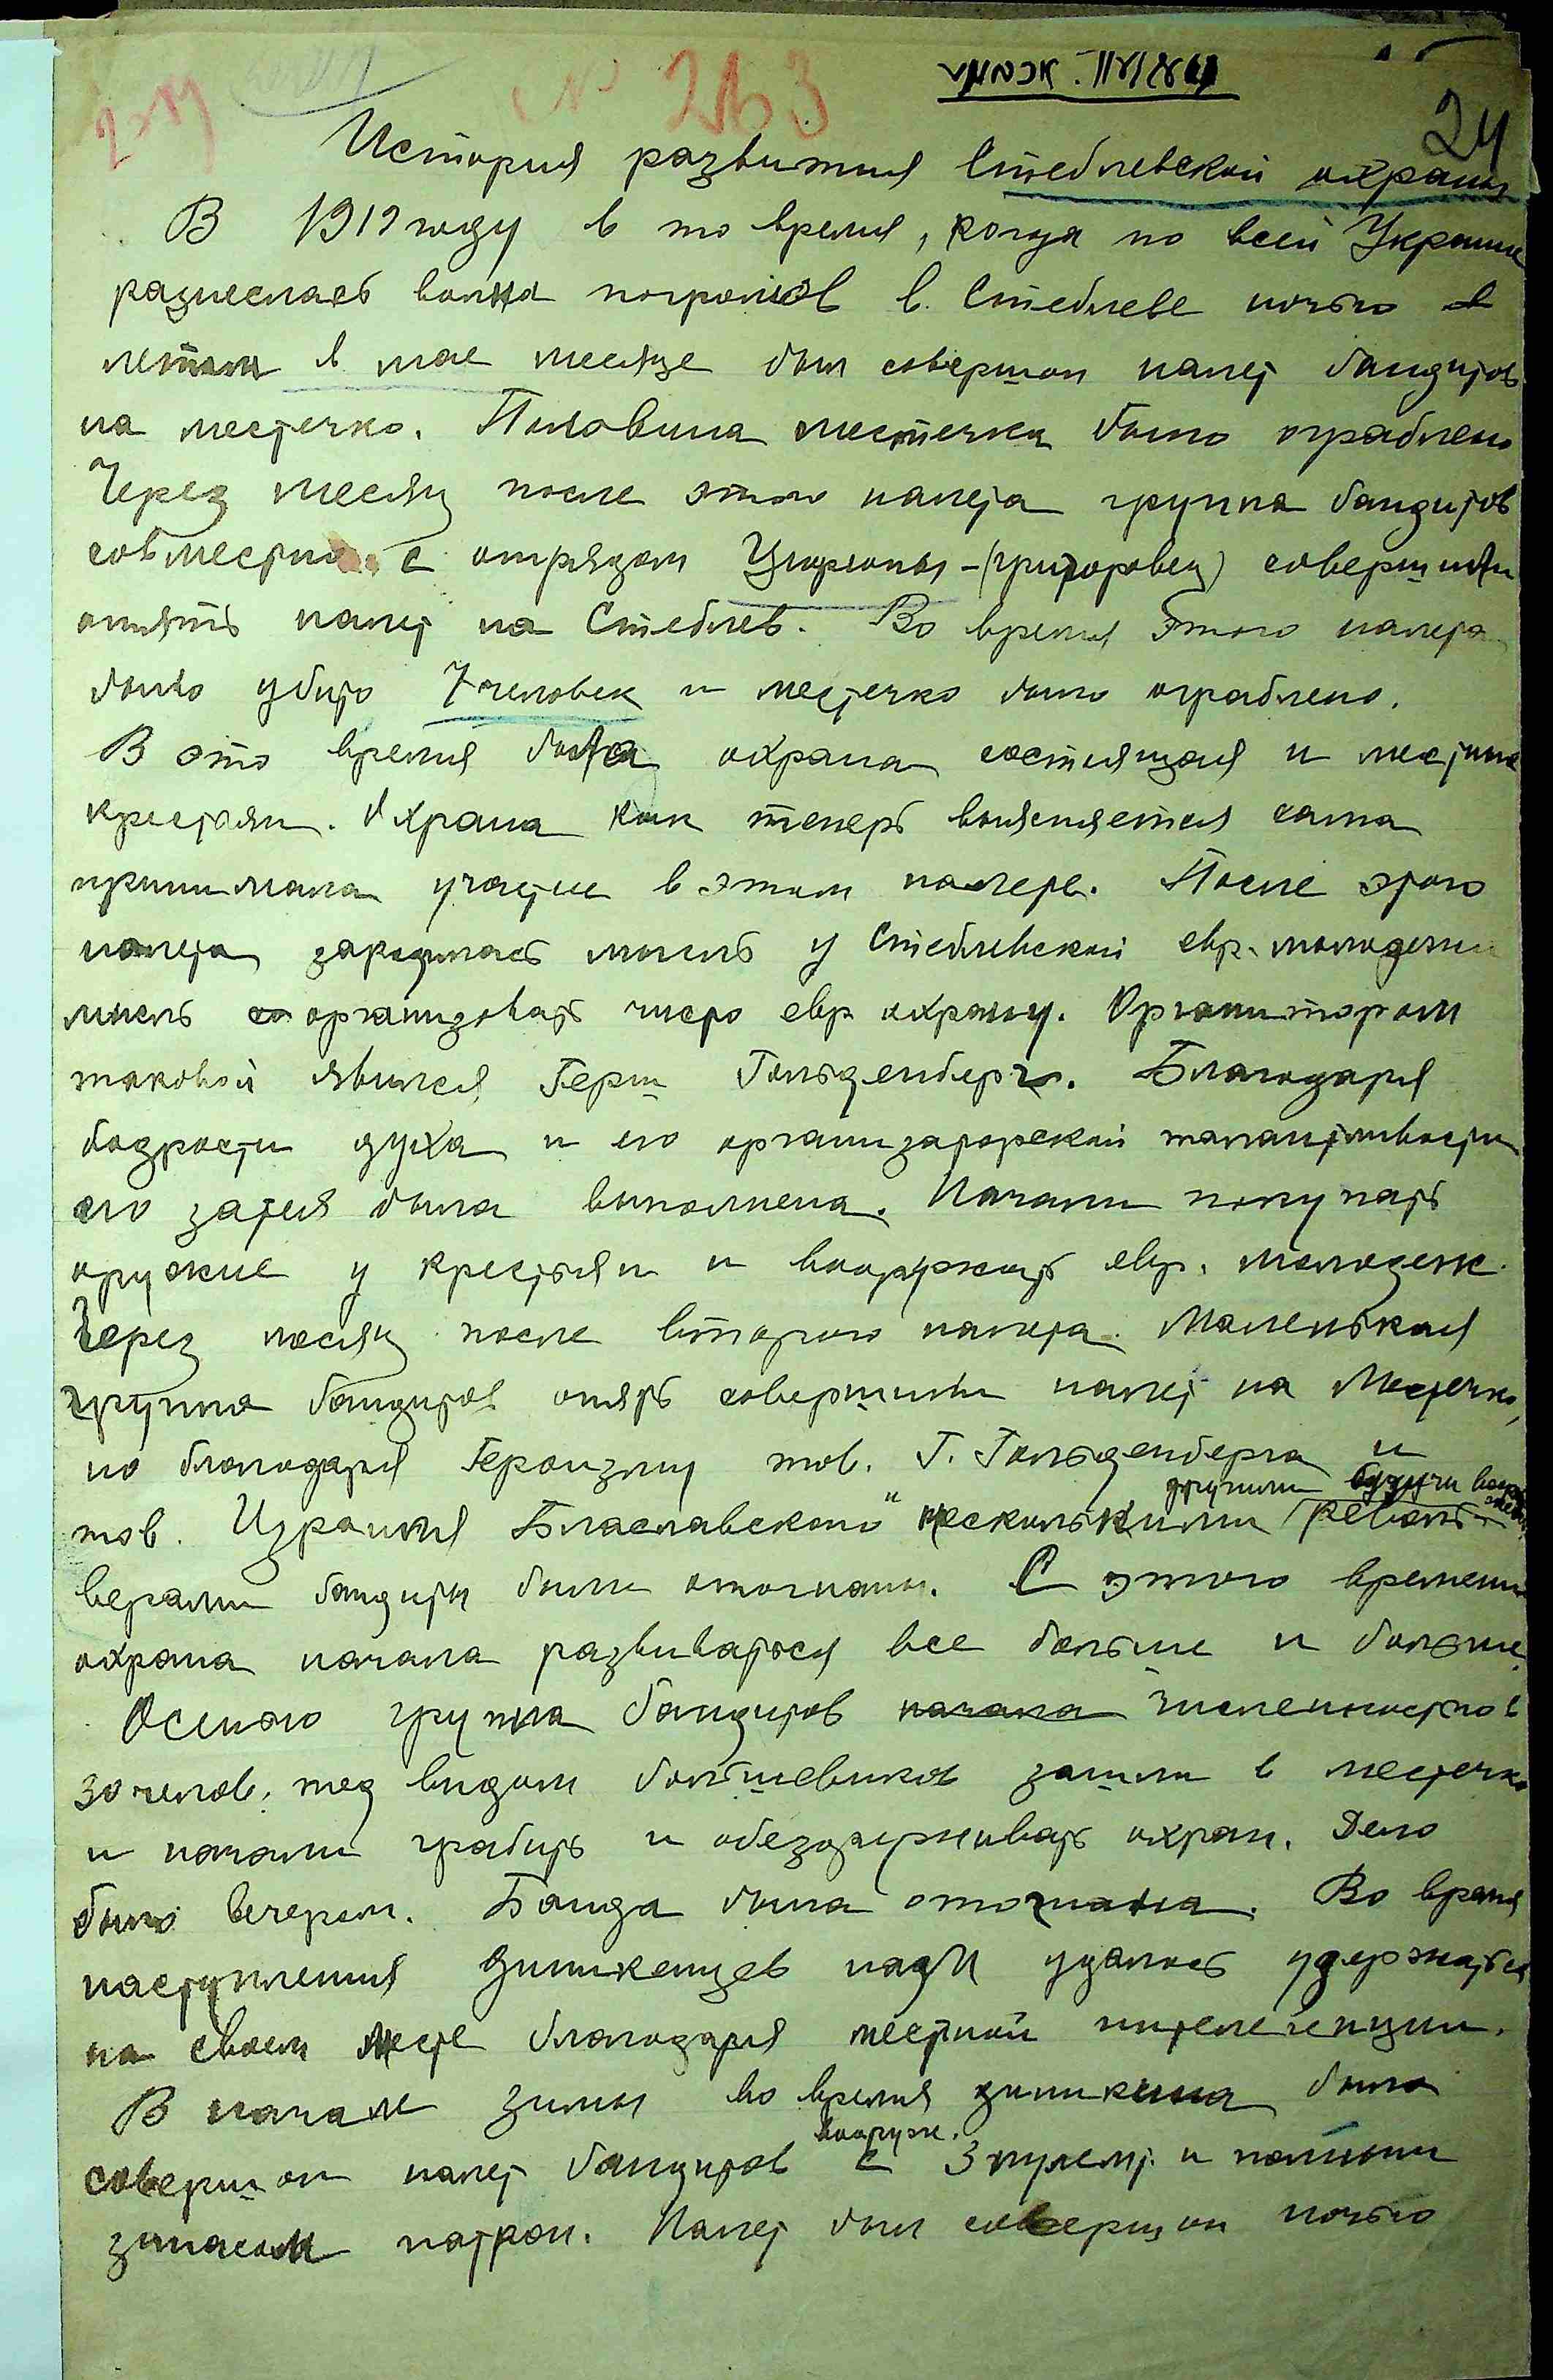 № 263
24
История развития Стеблевской охраны
В 1919 году в то время, когда по всей Украине
разнеслась волна погромов в Стеблеве ночью
летом в мае месяце был совершон налет бандитов
на местечко. Половина местечка было ограблено
Через месяц после этого налета группа бандитов
совместно с отрядом Уюрюпы - (григоровец) совершили
опять налет на Стеблев. Во время этого налета
было убито 7 человек и местечко было ограблено.
В это время была охрана состоящая и местных
крестьян. Охрана как теперь выясняется сама
принимала участие в этом налете. После этого
налета зародилась мысль у Стеблевской евр. молодежи
мысль организовать чисто евр. охрану. Органитором
таковой явился Герш Гольденберг. Благодаря
бодрости духа и его организаторской талантливости
его затея была выполнена. Начали покупать
оружие у крестьян и вооружать евр. молодеж.
Через месяц после второго налета. Маленькая
группа бандитов опять совершили налет на Местечко,
но благодаря Героизму тов. Г. Гольденберга и
другими будучи вооружен
тов. Израиля Блаславского несколькими револь-
верами бандиты были отогнаны. С этого времени
охрана начала развиваться все больше и больше.
Осенью группа бандитов начала численностью в
30 челов. под видом большевиков зашли в местечко
и начали грабить и обезоруживать охран. Дело
было вечером. Банда была отогнана. Во время
наступления деникенцев нам удалось удержаться
на своем месте благодаря местной интелегенции.
В начале зимы во время деникина было
вооруж.
совершон налет бандитов с 3 пулемт. и полным
запасом патрон. Налет был совершон ночью